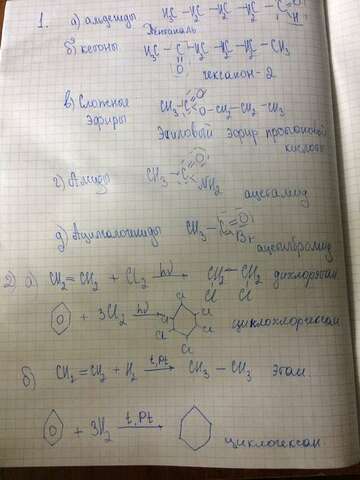 1. а) альдегиды H₃C–H₂C–H₂C–H₂C–C=O
H
Пентаналь
б) кетоны H₃C–C–H₂C–H₂C–H₂C–CH₃
O
гексанон-2
в) Сложные CH₃–C=O
эфиры O–CH₂–CH₂–CH₃
Этиловый эфир пропионовой
кислоты
г) Амиды CH₃–C=O
NH₂
ацетамид
д) Ацилгалогениды CH₃–C=O
Br
ацетилбромид
2) а) CH₂=CH₂ + Cl₂ hν→ CH₂–CH₂ дихлорэтан
Cl Cl
+ 3Cl₂ hν→ Cl Cl Cl Cl Cl Cl циклохлоргексан
б) CH₂=CH₂ + H₂ t, Pt→ CH₃–CH₃ этан.
+ 3H₂ t, Pt→ циклогексан.